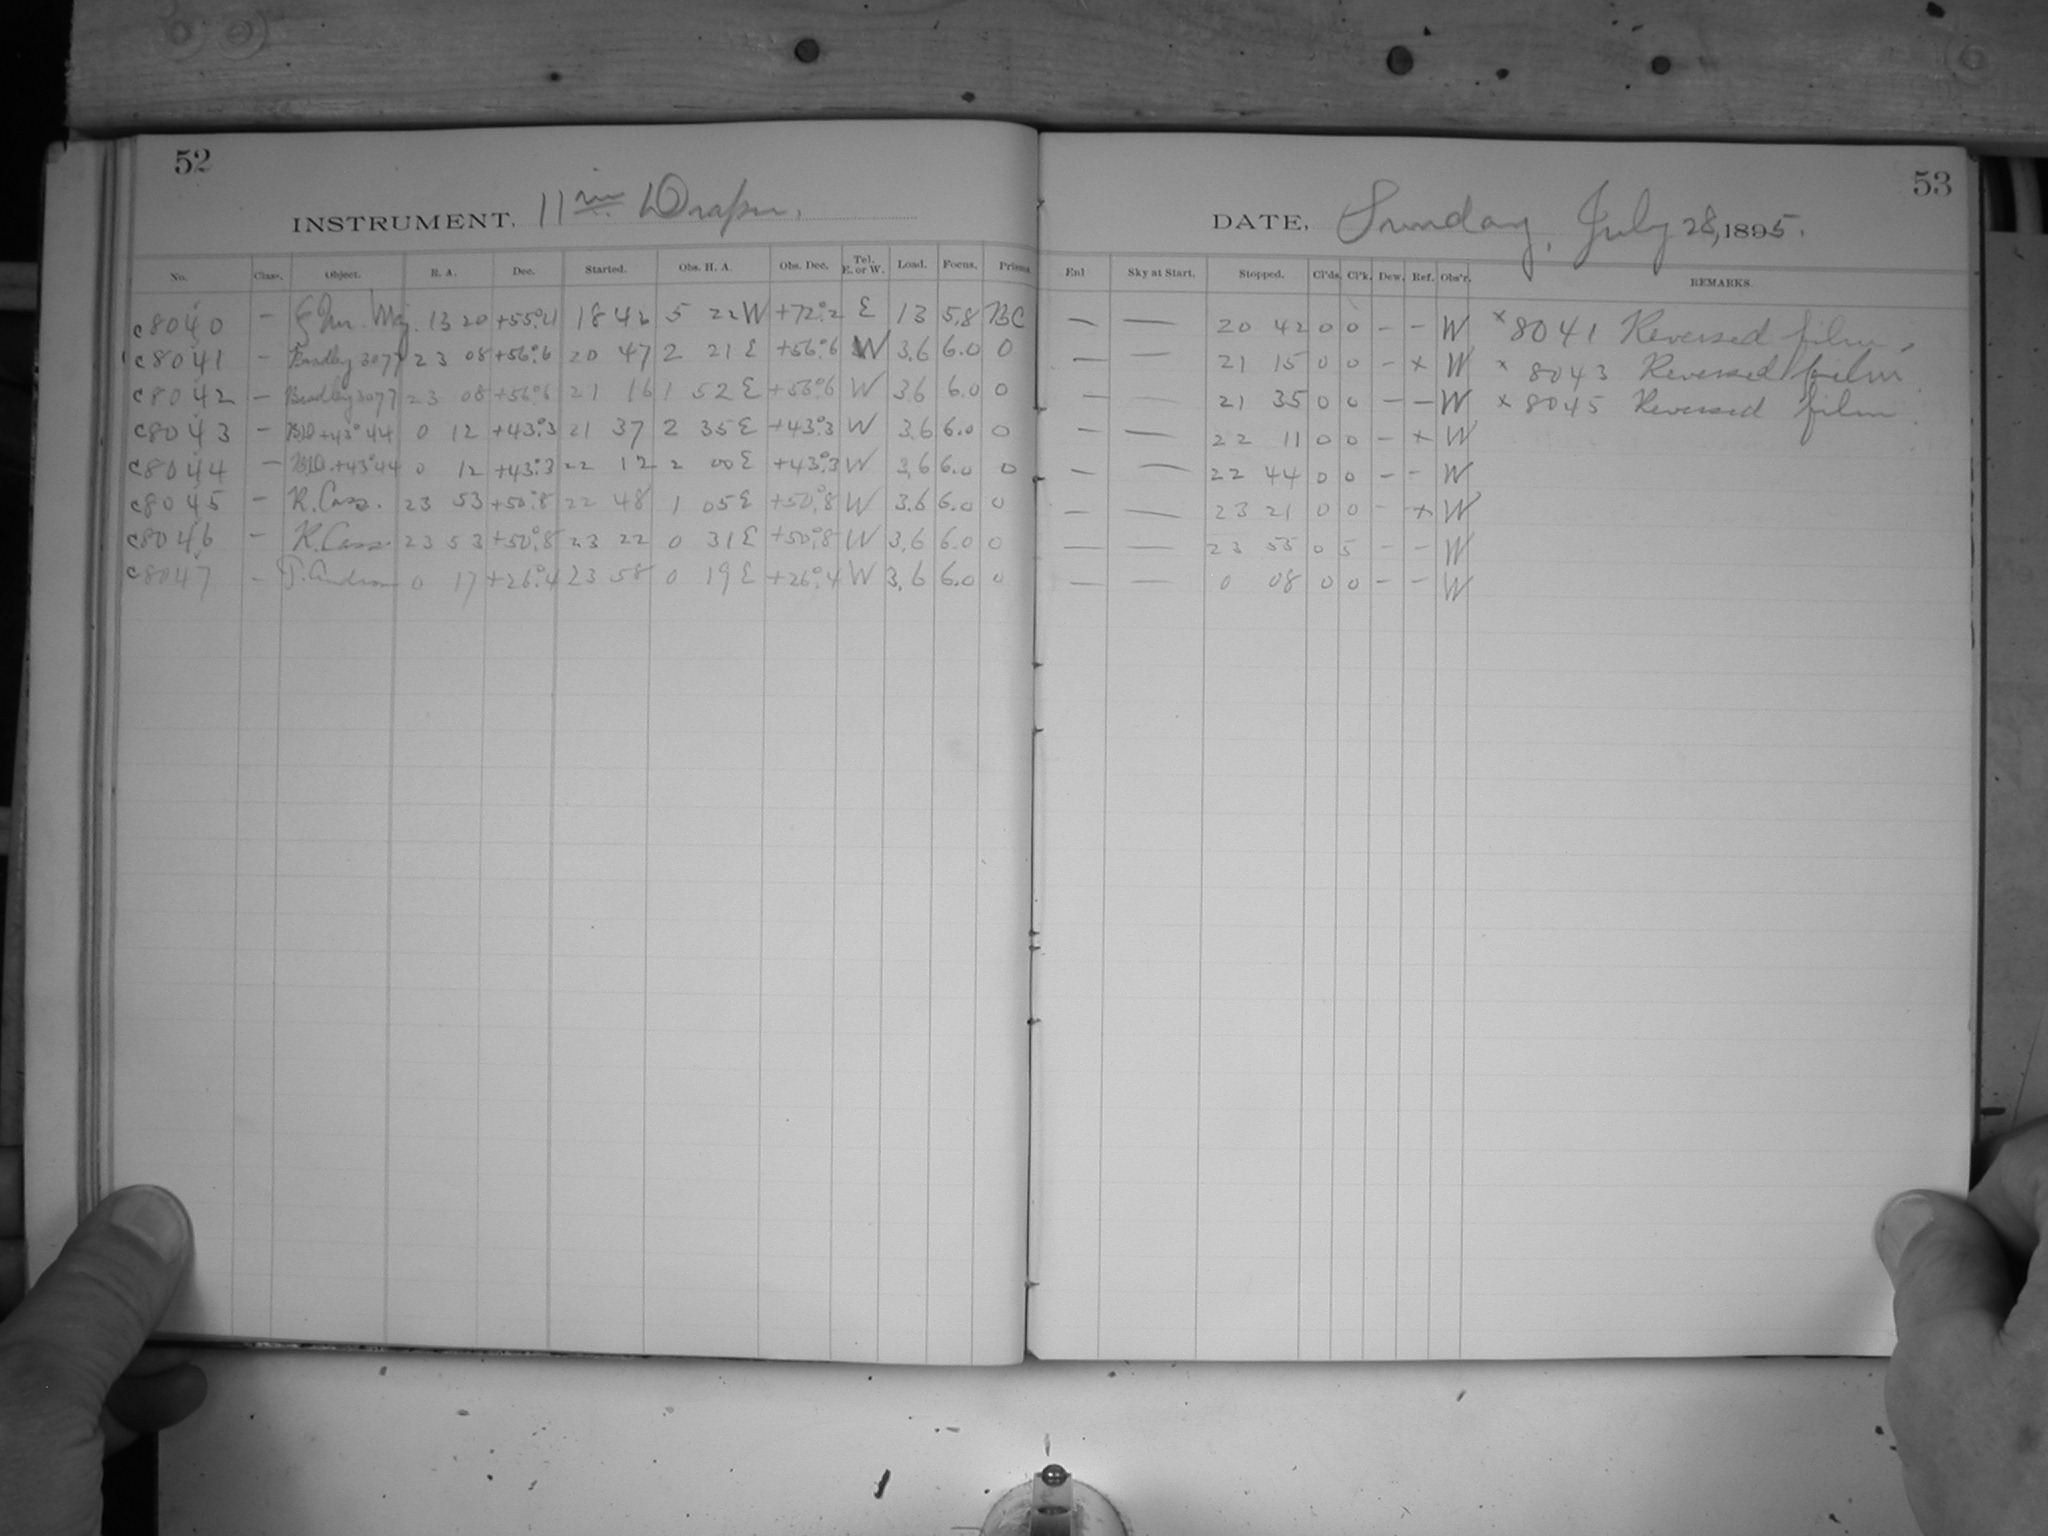 52
INSTRUMENT, 11 in Draper.
No. Class. Object. R. A. Dec. Started. Obs. H. A. Obs. Dec. Tel. E. or W. Load. Focus. Prisms
c8040 – ζ Ur. Maj. 13 20 +55°.4 18 42 5 22W +72°.2 E 13 5.8 BC
c8041 – Bradley 3077 23 08 +56°.6 20 47 2 21 E +56°.6 W 3.6 6.0 0
c8042 – Bradley 3077 23 08 +56°.6 21 16 1 52 E +56°.6 W 3.6 6.0 0
c8043 – BD +43°44 0 12 +43°.3 21 37 2 35 E +43°.3 W 3.6 6.0 0
c8044 – BD. +43°44 0 12 +43°.3 22 12 2 00 E +43°.3 W 3.6 6.0 0
c8045 – R. Cass. 23 53 +50°.8 22 48 1 05 E +50°.8 W 3.6 6.0 0
c8046 – R. Cass 23 53 +50°.8 23 22 0 31 E +50°.8 W 3.6 6.0 0
c8047 – T. Androm 0 17 +26°.4 23 58 0 19 E +26°.4 W 3.6 6.0 0
53
DATE, Sunday, July 28, 1895.
Enl Sky at Start. Stopped. Cl'ds. Cl'k. Dew. Ref. Obs'r. REMARKS.
– – 20 42 0 0 – – W × 8041 Reversed film.
– – 21 15 0 0 – × W × 8043 Reversed film
– – 21 35 0 0 – – W × 8045 Reversed film
– – 22 11 0 0 – × W
– – 22 44 0 0 – – W
– – 23 21 0 0 – × W
– – 23 55 0 5 – – W
– – 0 08 0 0 – – W